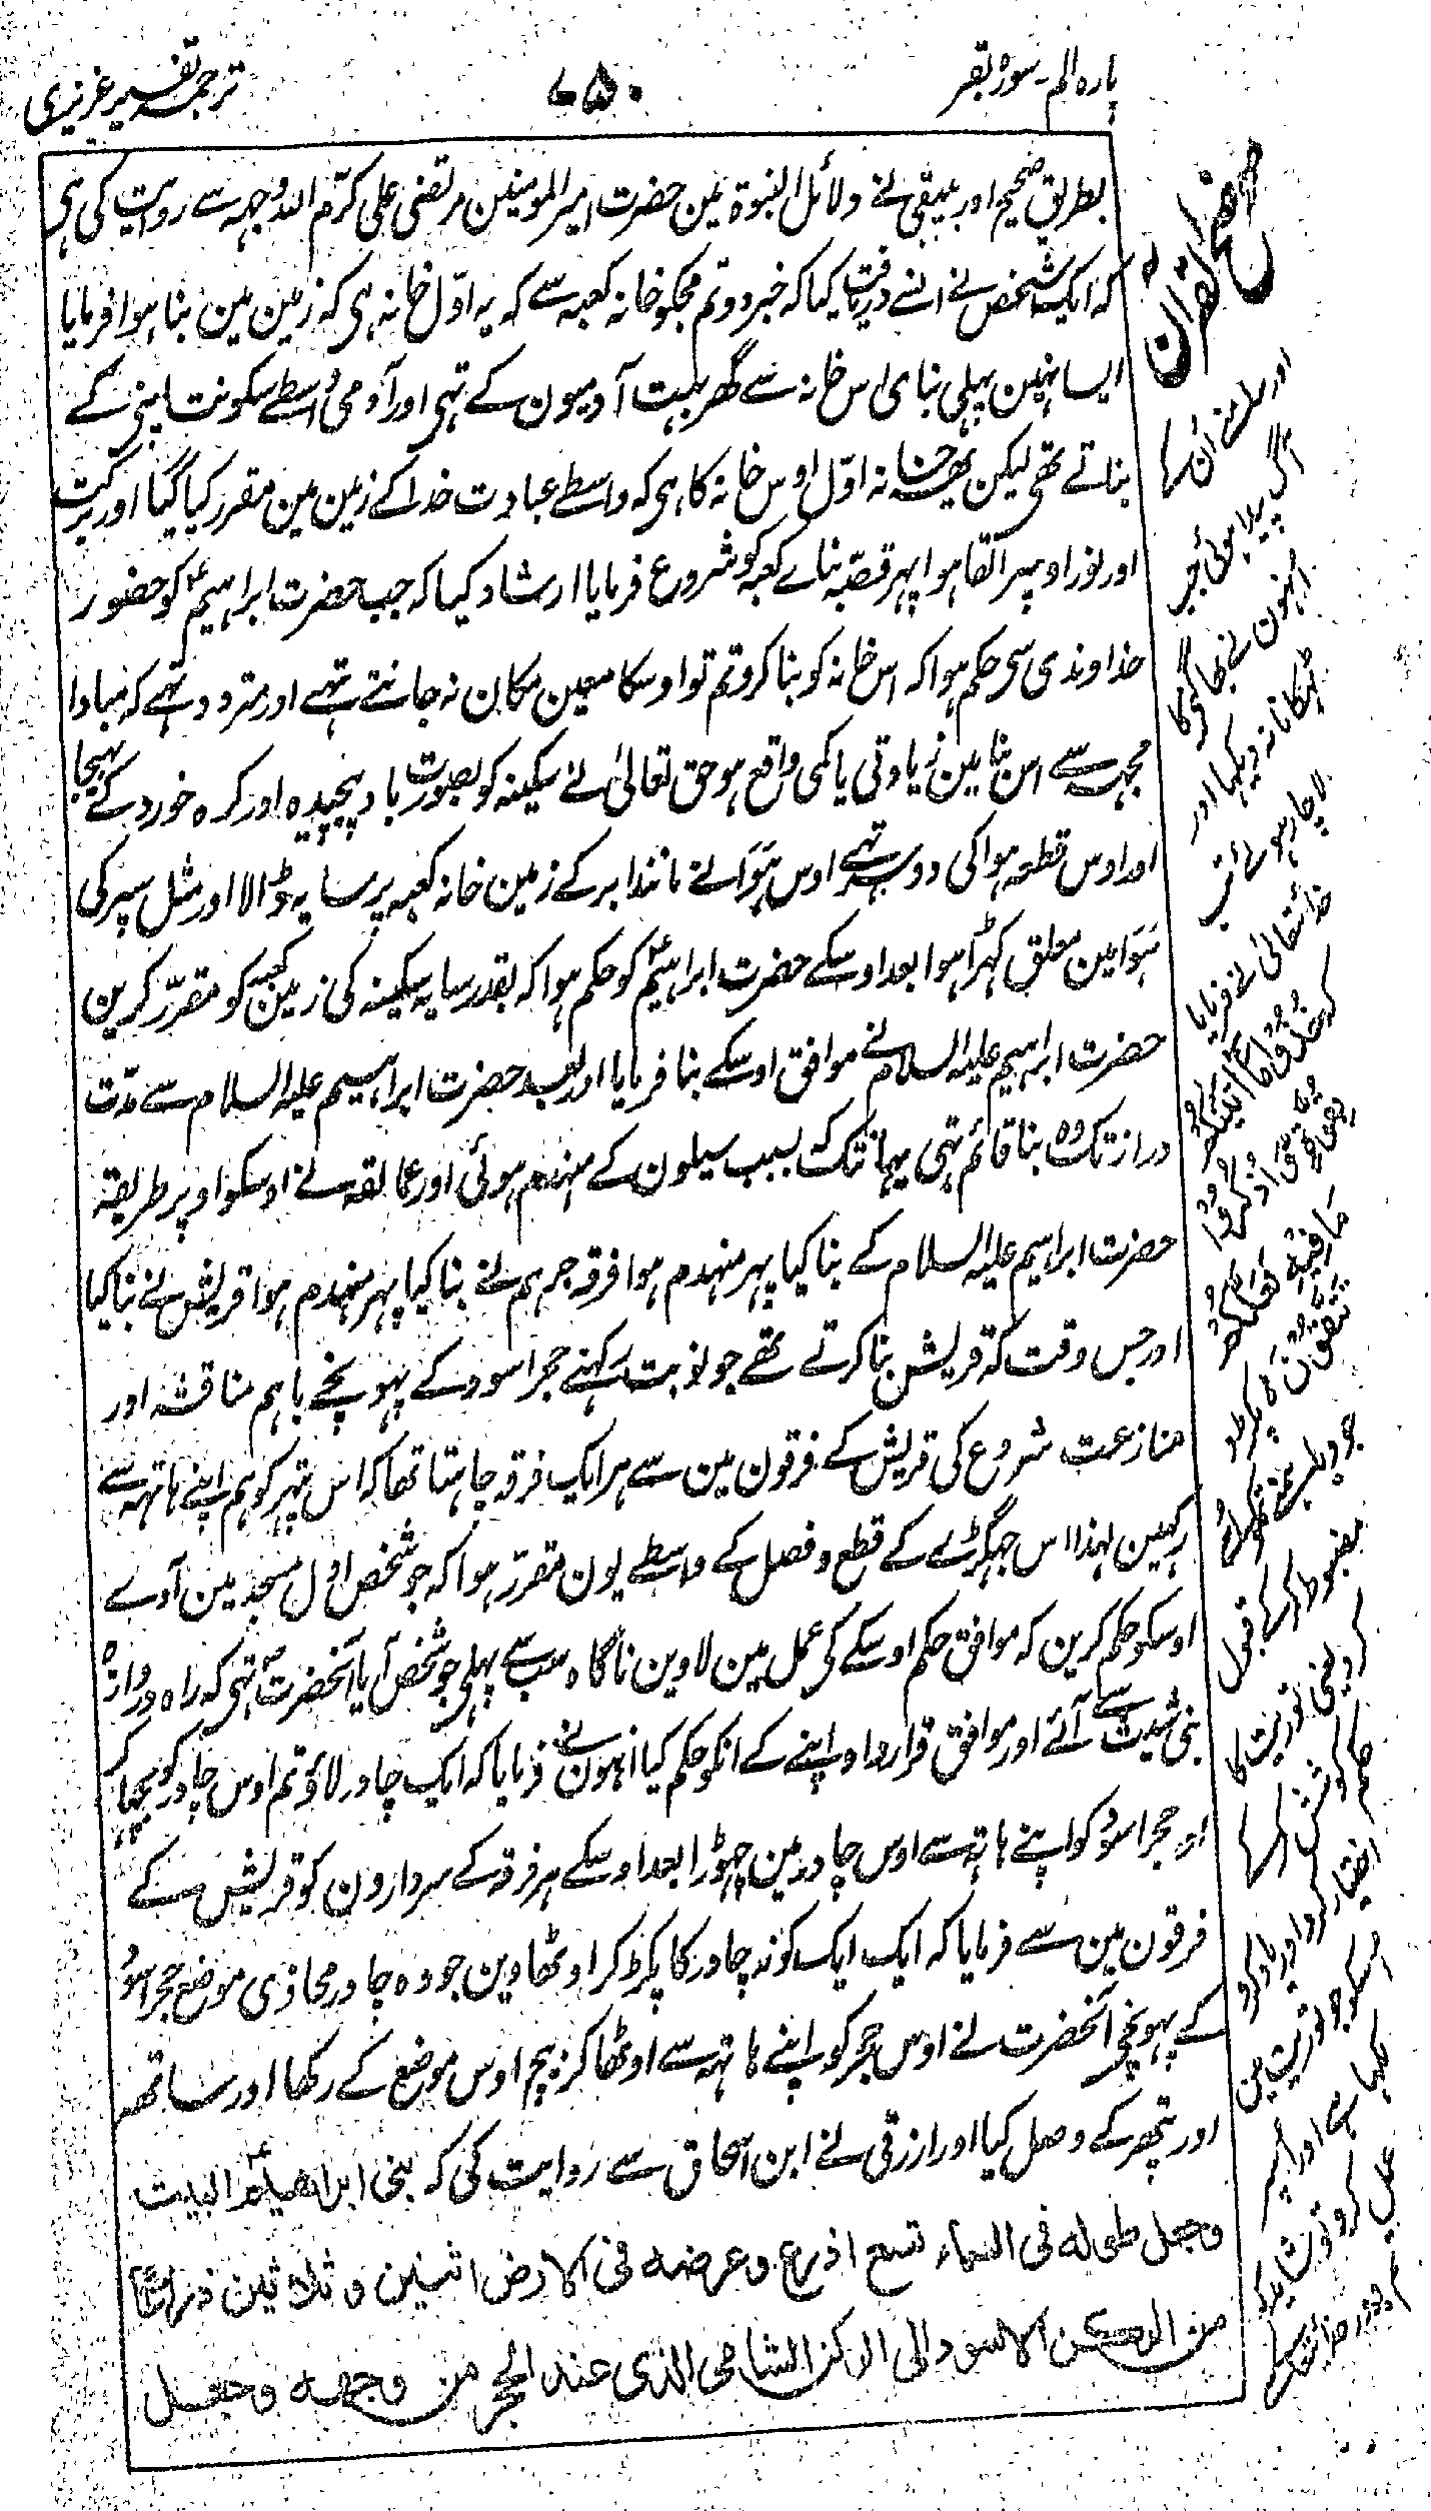 پارہ الم - سورہ بقر
۷۵۰
ترجمہ تفسیر عزیزی
بطریق صحیح اور بیہقی نے دلائل النبوۃ مین حضرت امیر المومنین مرتضی علی کرّم اللہ وجہہ سے روایت کی ہی
کہ ایک شخص نے انسے دریافت کیا کہ خبر دو تم مجکو خانہ کعبہ سے کہ یہ اوّل خانہ ہی کہ زمین مین بنا ہوا فرمایا
ایسا نہین پہلی بنای اس خانہ سے گھر بہت آدمیون کے تہی اور آدمی واسطے سکونت اپنی کے
بناتے تھی لیکن یہ خانہ اوّل اوس خانہ کا ہی کہ واسطے عبادت خدا کے زمین مین مقرر کیا گیا اور برکت
اور نور اوپر القا ہوا پہر قصّہ بناے کعبہ کو شروع فرمایا ارشاد کیا کہ جب حضرت ابراہیمؑ کو حضور
خداوندی سی حکم ہوا کہ اس خانہ کو بنا کرو تم تو اوسکا معین مکان نہ جانتے تہے اور متردد تہے کہ مبادا
مجہسے اس بنا مین زیادتی یا کمی واقع ہو حق تعالیٰ نے سکینہ کو بصورت باد پیچیدہ اور کرہ خورد کے بہیجا
اور اوس قطعہ ہوا کی دو سر تہے اوس ہوَا نے مانند ابر کے زمین خانہ کعبہ پر سایہ ڈالا اور مثل سپر کی
ہوَا مین معلق کہڑا ہوا بعد اوسکے حضرت ابراہیمؑ کو حکم ہوا کہ بقدر سایہ سکینہ کی زمین کعبہ کو مقرّر کرین
حضرت ابراہیم علیہ السلام نے موافق اوسکے بنا فرمایا اور بعد حضرت ابراہیم علیہ السلام سے مدّت
دراز تک وہ بنا قائم تہی یہانتک کہ بسبب سیلون کے منہدم ہوئی اور عمالقہ نے اوسکو اوپر طریقہ
حضرت ابراہیم علیہ السلام کے بنا کیا پہر منہدم ہوا فرقہ جرہم نے بنا کیا پہر منہدم ہوا قریش نے بنا کیا
اور جس وقت کہ قریش بنا کرتے تھے جو نوبت رکہنے حجر اسود کے پہونچے باہم مناقشہ اور
منازعت شروع کی قریش کے فرقون مین سے ہر ایک فرقہ چاہتا تھا کہ اس پتہر کو ہم اپنے ہاتہہ سے
رکہین لہذا اس جہگڑے کے قطع و فصل کے واسطے یون مقرّر ہوا کہ جو شخص اول مسجد مین آوے
اوسکو حکم کرین کہ موافق حکم اوسکے کی عمل مین لاوین ناگاہ سب سے پہلی جو شخص آیا آنحضرتؐ تہی کہ راہ دروازہ
بنی شیبہ سے آئے اور موافق قرارداد اپنے کے انکو حکم کیا انہون نے فرمایا کہ ایک چادر لاؤ تم اوس چادر کو بچہا کر
اور حجر اسود کو اپنے ہاتہ سے اوس چادر مین چہوڑا بعد اوسکے ہر فرقہ کے سردارون کو قریش کے
فرقون مین سے فرمایا کہ ایک ایک کونہ چادر کا پکڑ کر اوٹھاوین جو وہ چادر محاذی موضع حجر اسود
کے پہونچی آنحضرت نے اوس حجر کو اپنے ہاتہہ سے اوٹھا کر بیچ اوس موضع کے رکھا اور ساتھ
اور پتھر کے وصل کیا اور ازرقی نے ابن اسحاق سے روایت کی کہ بنی ابراھیمؑ البیت
وجعل طولہ فی السماء تسع اذرع وعرضہ فی الارض اثنین وثلاثین ذراعًا
من الرکن الاسود الی الرکن الشامی الذی عند الحجر من وجھہ وجعل
اور سامنے ان کے
آگ پیدا ہوئی جب
انہون نے بھاگنے کا
ٹہکانا نہ دیکہا اور
لاچار ہوئے تب
خدا تعالی نے فرمایا
کہ خُذُوا مَا آتَيْنَاكُمْ
بِقُوَّةٍ وَاذْكُرُوا
مَا فِيهِ لَعَلَّكُمْ
تَتَّقُونَ پکڑو
جو دیا ہمنے تمکو
مضبوط کرکے قبول
کرو یعنی توریت کا
حکم کوشش کرکے
اختیار کرو اور یاد کرو
اسکو جو توریت مین
لکہا ہے اور اسپر
عمل کرو تو شاید کہ
تم